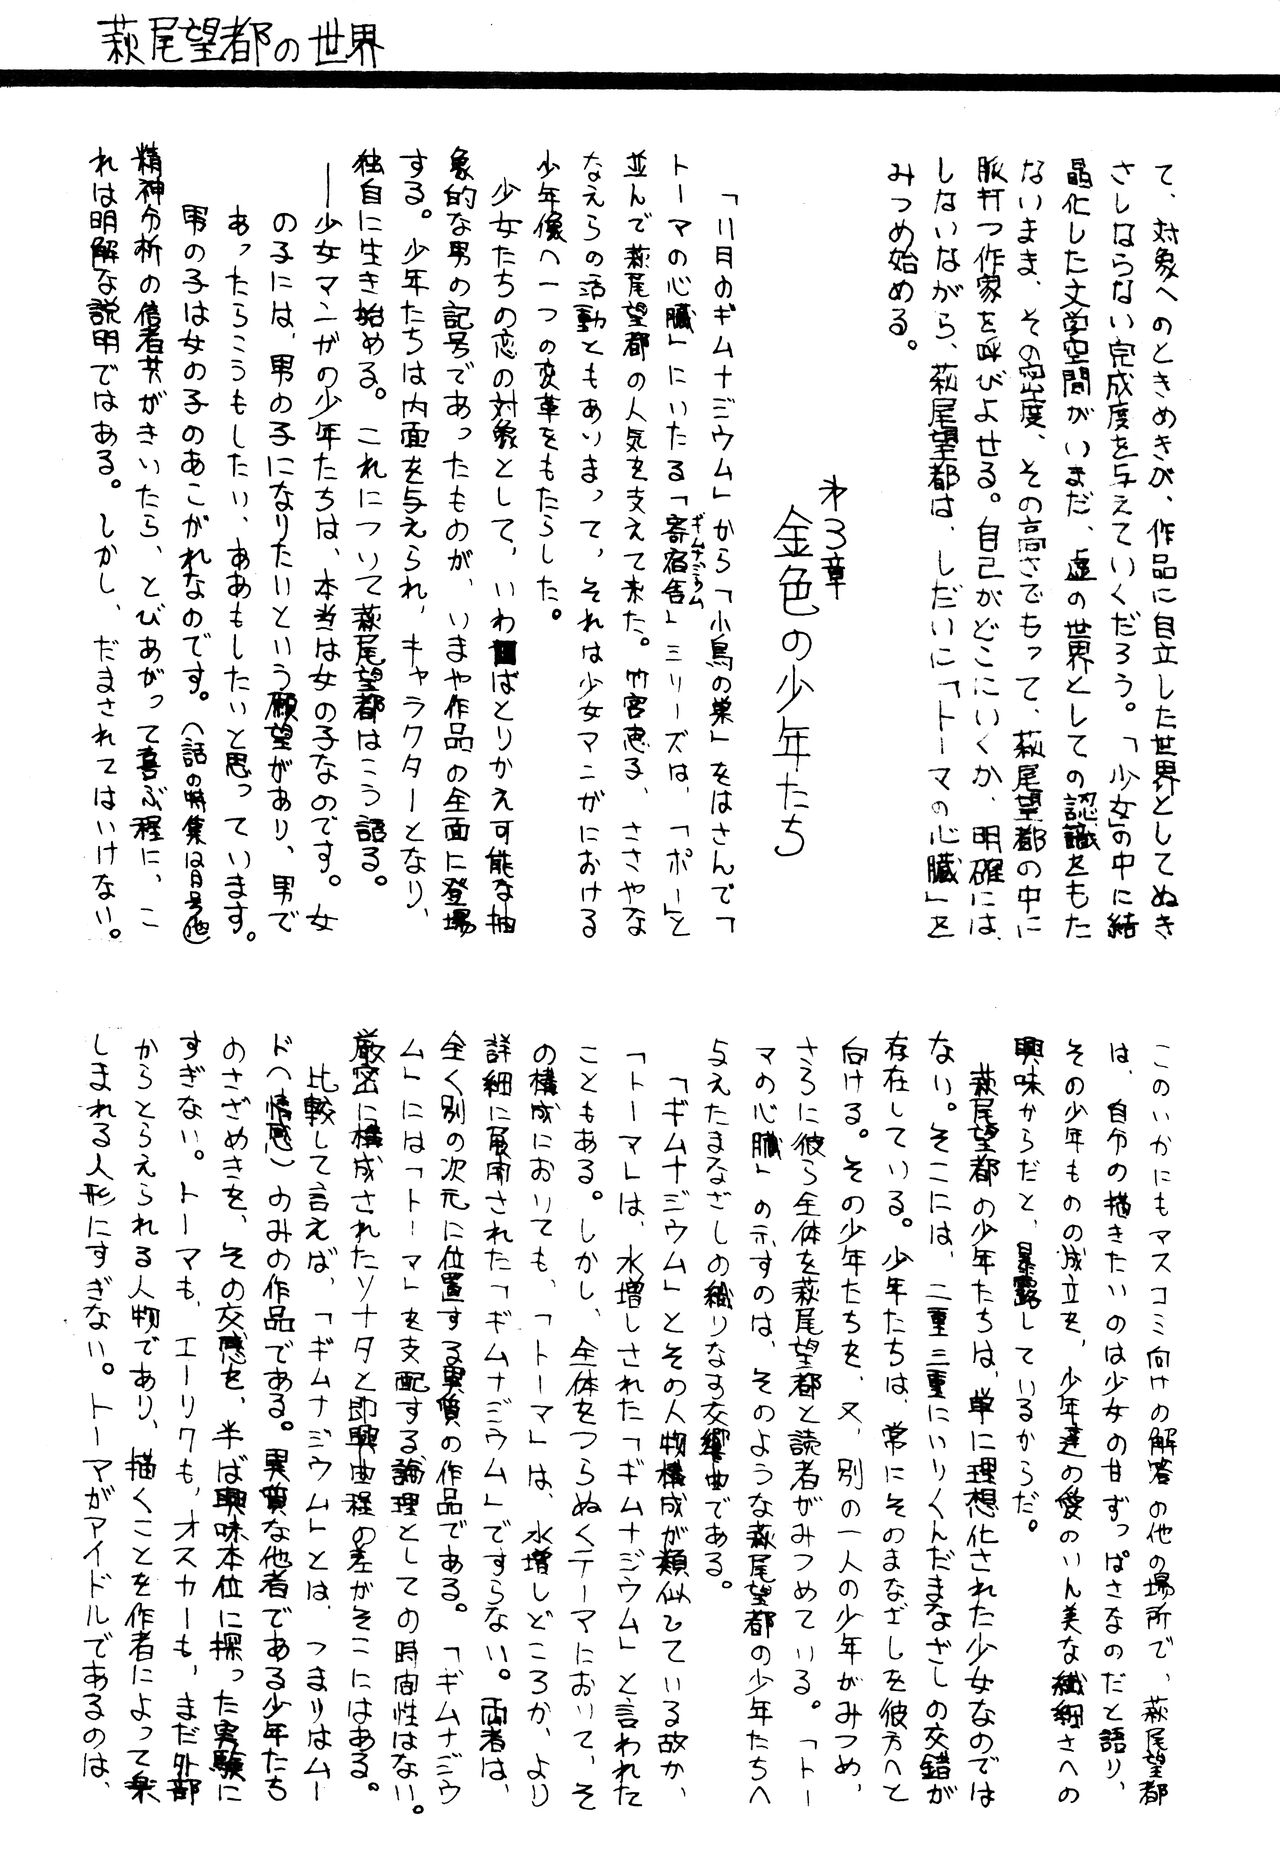 萩尾望都の世界
て、対象へのときめきが、作品に自立した世界としてぬき
さしならない完成度を与えていくだろう。「少女」の中に結
晶化した文学空間がいまだ、虚の世界としての認識をもた
ないまま、その密度、その高さでもって、萩尾望都の中に
脈打つ作家を呼びよせる。自己がどこにいくか、明確には、
しないながら、萩尾望都は、しだいに「トーマの心臓」を
みつめ始める。
才3章
金色の少年たち
「11月のギムナジウム」から「小鳥の巣」をはさんで「
トーマの心臓」にいたる「寄宿舎」ミリーズは、「ポー」と
ギムナジウム
並んで萩尾望都の人気を支えて来た。竹宮恵る、ささやな
なえらの活動ともあいまって、それは少女マンガにおける
少年像へ一つの変革をもたらした。
少女たちの恋の対象として、いわばとりかえ可能な抽
象的な男の記号であったものが、いまや作品の全面に登場
する。少年たちは内面を与えられ、キャラクターとなり、
独自に生き始める。これについて萩尾望都はこう語る。
―少女マンガの少年たちは、本当は女の子なのです。女
の子には、男の子になりたいという願望があり、男で
あったらこうもしたい、ああもしたいと思っています。
男の子は女の子のあこがれなのです。(話の特集11月号他)
精神分析の信者共がきいたら、とびあがって喜ぶ程に、こ
れは明解な説明ではある。しかし、だまされてはいけない。
このいかにもマスコミ向けの解答の他の場所で、萩尾望都
は、自分の描きたいのは少女の甘ずっぱさなのだと語り、
その少年もの の成立を、少年達の愛のいん美な繊細さへの
興味からだと、暴露しているからだ。
萩尾望都の少年たちは、単に理想化された少女なのでは
ない。そこには、二重三重にいりくんだまなざしの交錯が
存在している。少年たちは、常にそのまなざしを彼方へと
向ける。その少年たちを、又、別の一人の少年がみつめ、
さらに彼ら全体を萩尾望都と読者がみつめている。「トー
マの心臓」の示すのは、そのような萩尾望都の少年たちへ
与えたまなざしの織りなす交響曲である。
「ギムナジウム」とその人物構成が類似している故か、
「トーマ」は、水増しされた「ギムナジウム」と言われた
こともある。しかし、全体をつらぬくテーマにおいて、そ
の構成においても、「トーマ」は、水増しどころか、より
詳細に展開された「ギムナジウム」ですらない。両者は、
全く別の次元に位置する異質の作品である。「ギムナジウ
ム」には「トーマ」を支配する論理としての時間性はない。
厳密に構成されたソナタと即興曲程の差がそこにはある。
比較して言えば、「ギムナジウム」とは、つまりはムー
ド(情感)のみの作品である。異質な他者である少年たち
のさざめきを、その交感を、半ば興味本位に探った実験に
すぎない。トーマも、エーリクも、オスカーも、まだ外部
からとらえられる人物であり、描くことを作者によって楽
しまれる人形にすぎない。トーマがアイドルであるのは、